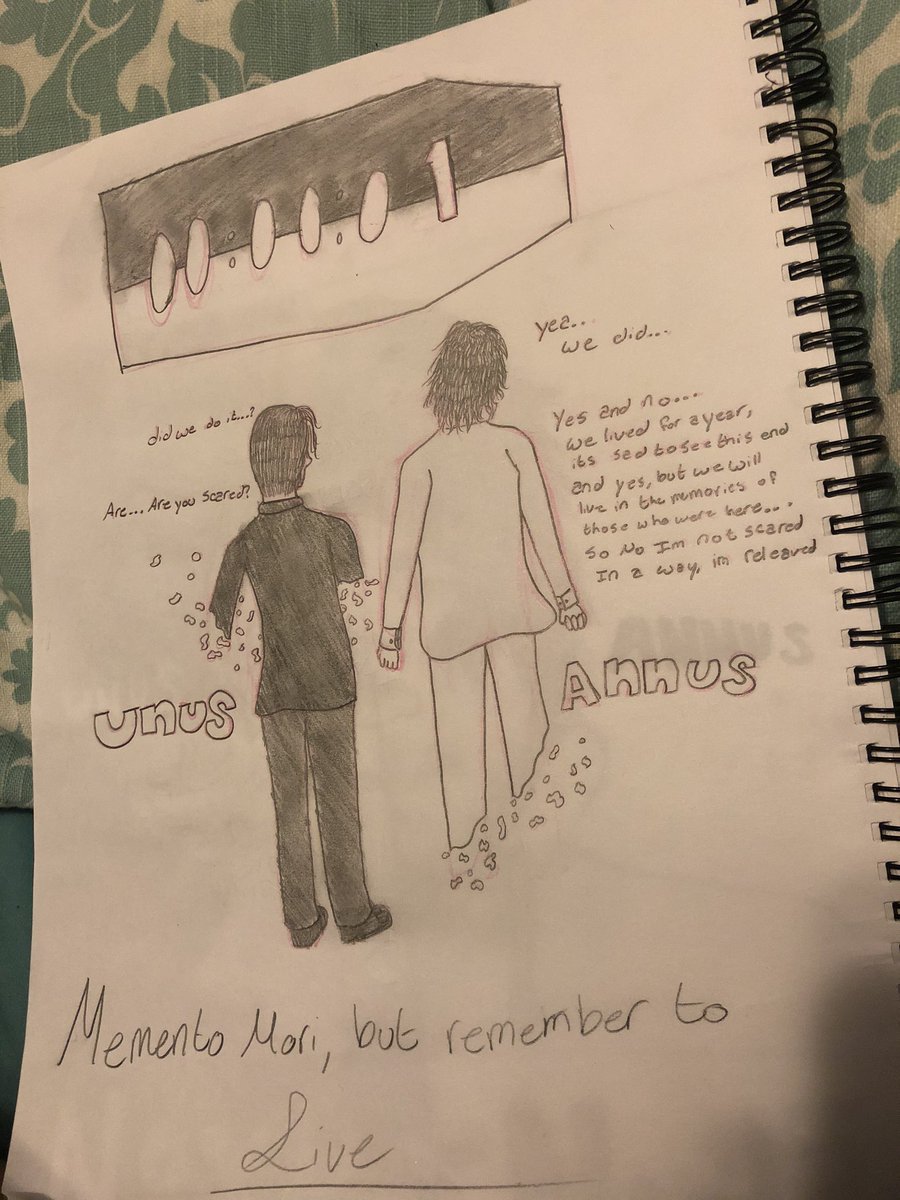 00:00:01
yea...
we did...
did we do it...?
Are... Are you scared?
Yes and no...
we lived for a year,
its sad to see this end
and yes, but we will
live in the memories of
those who were here...
So No Im not scared
In a way, im releaved
Unus
Annus
ANNUS
Memento Mori, but remember to
Live